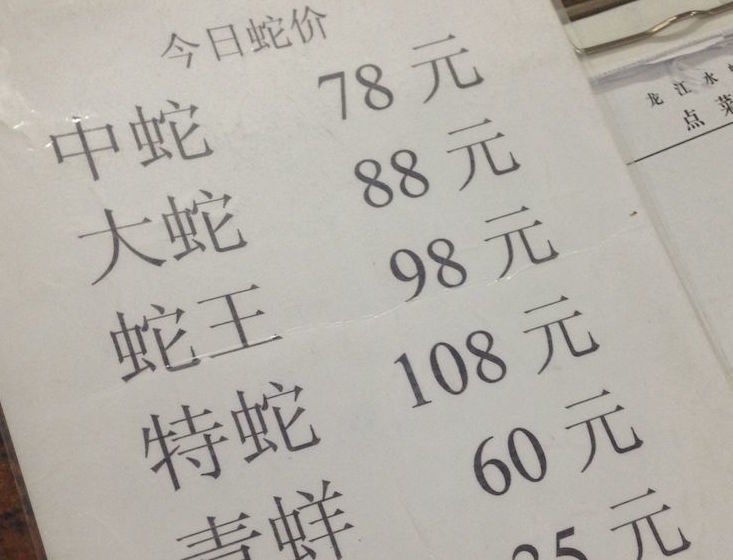 今日蛇价
中蛇 78元
大蛇 88元
蛇王 98元
特蛇 108元
青蛘 60元
元
龙江水
点菜